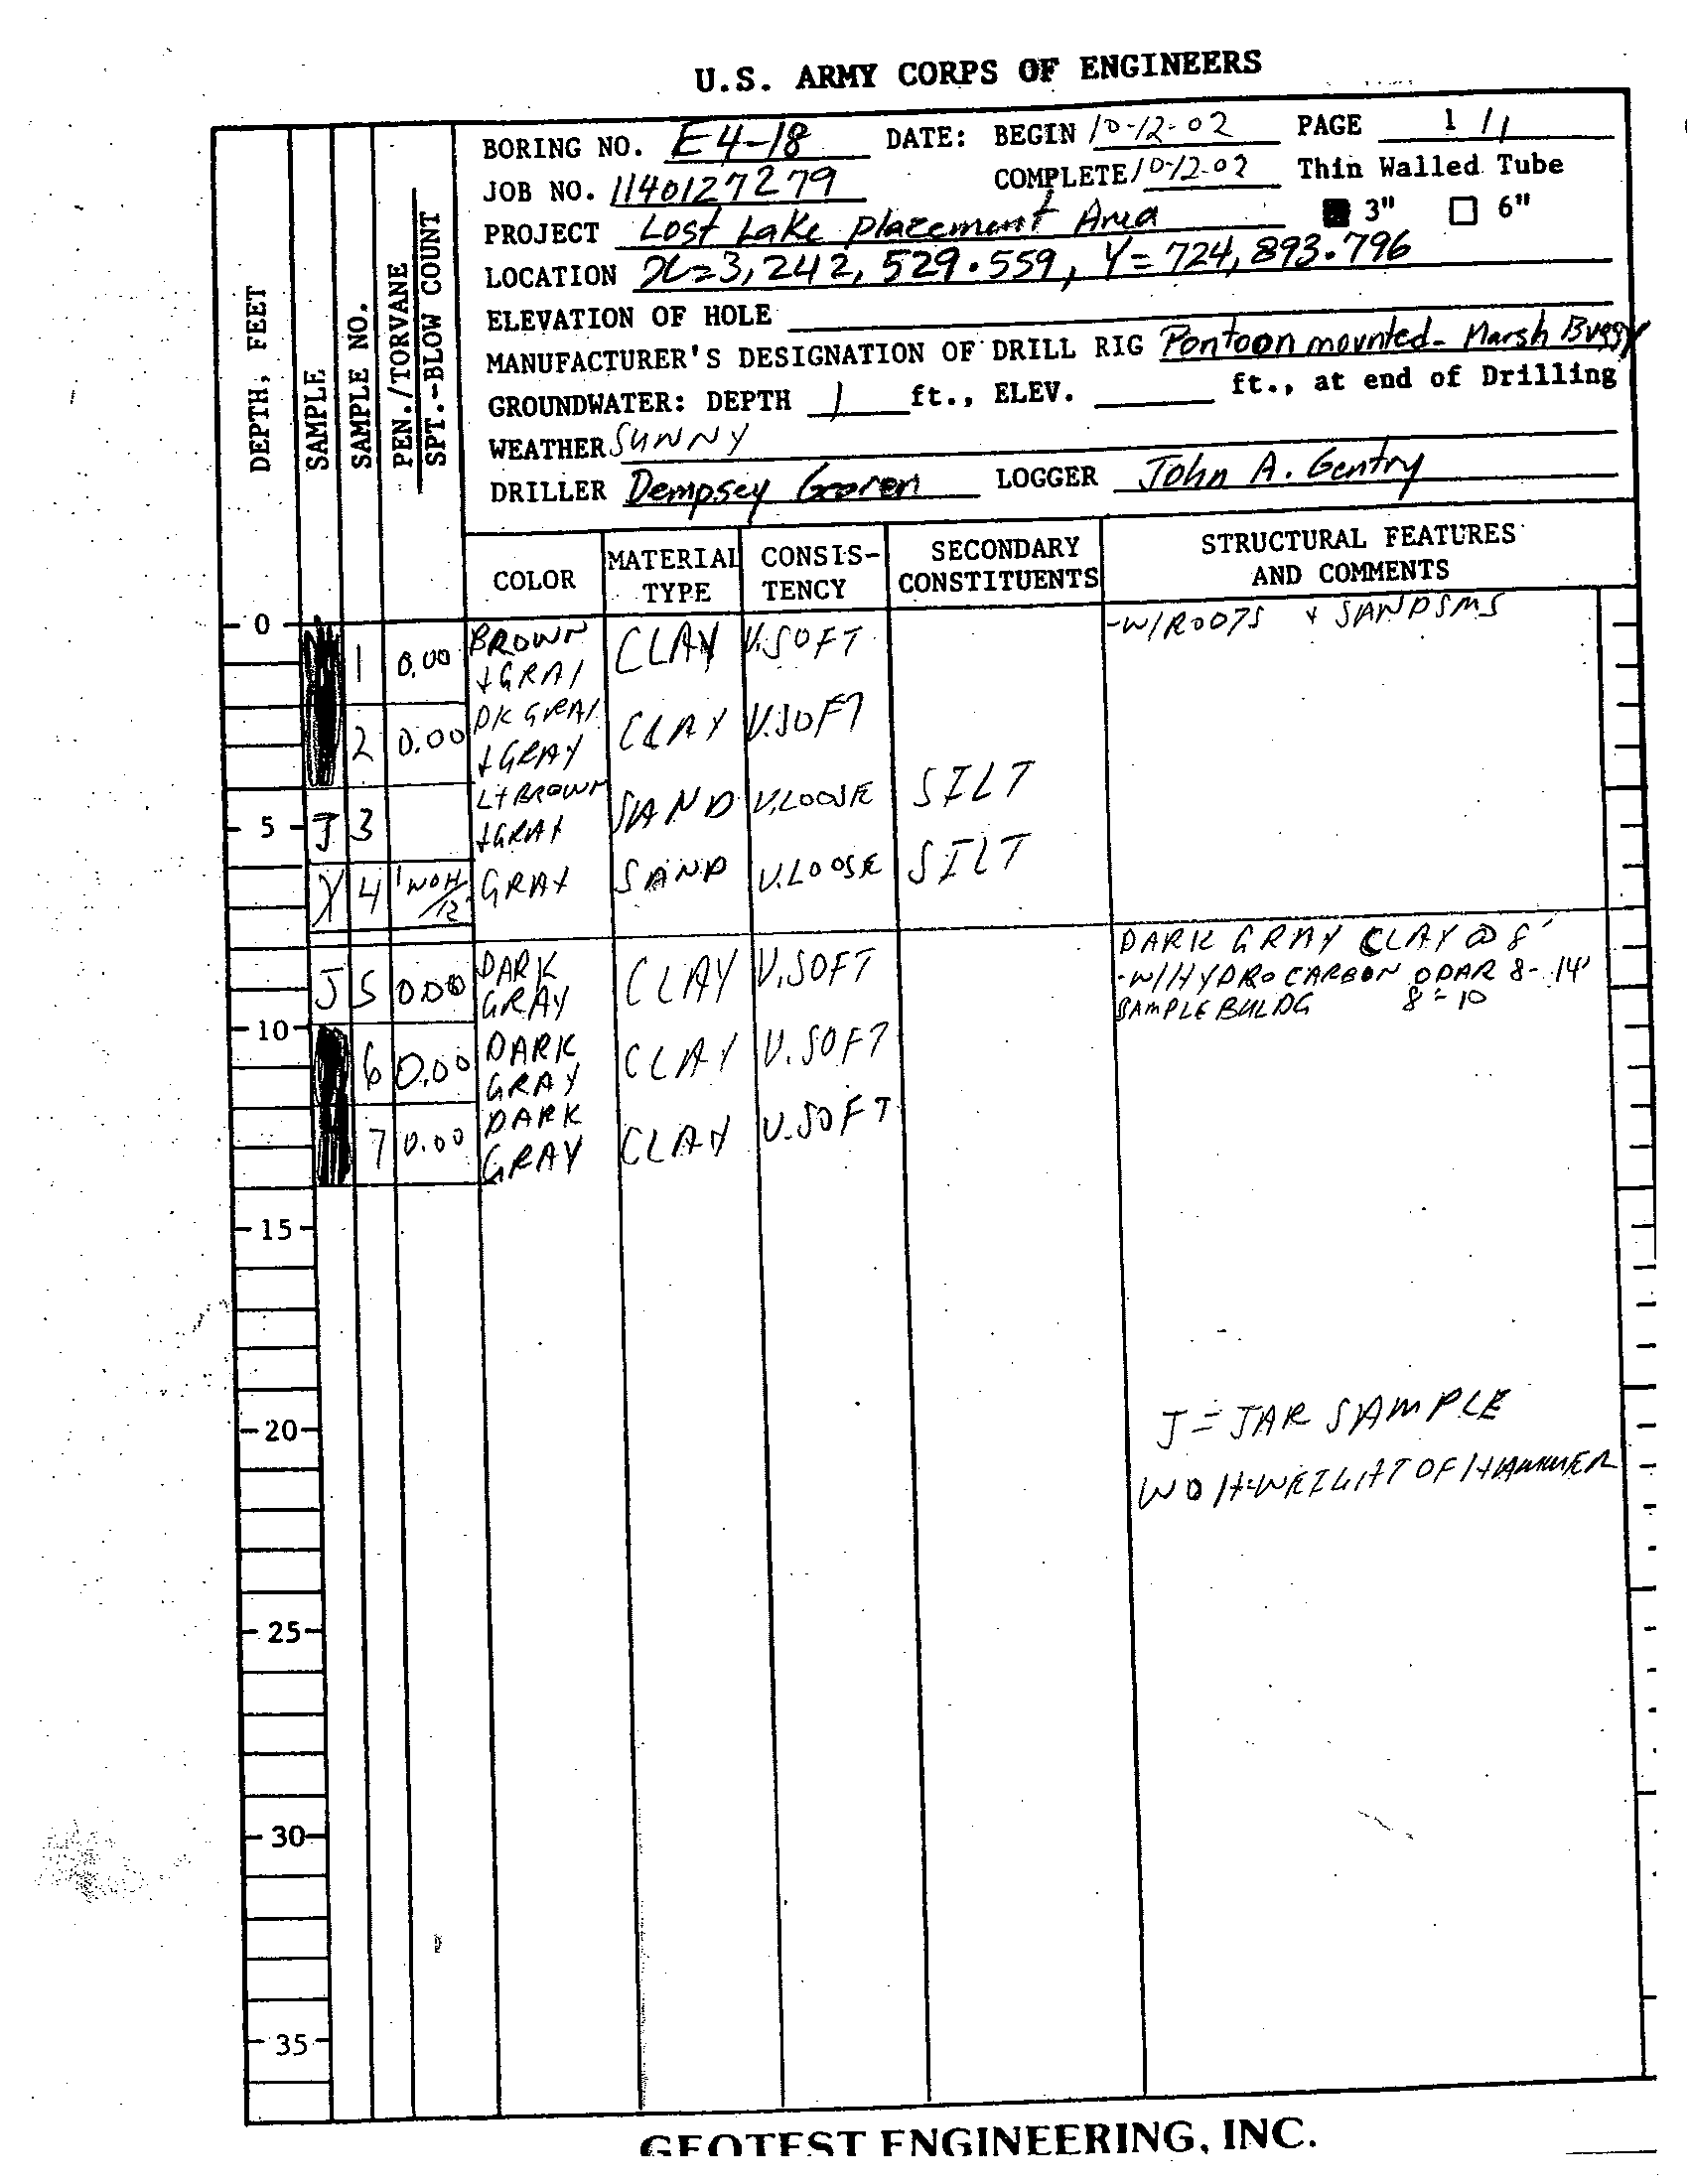 U.S. ARMY CORPS OF ENGINEERS
BORING NO. E4-18 DATE: BEGIN 10-12-02 PAGE 1 / 1
JOB NO. 1140127279 COMPLETE 10-12-02 Thin Walled Tube
PROJECT Lost Lake Placement Area 3" 6"
LOCATION X=3,242,529.559, Y=724,893.796
ELEVATION OF HOLE
MANUFACTURER'S DESIGNATION OF DRILL RIG Pontoon mounted- Marsh Buggy
GROUNDWATER: DEPTH 1 ft., ELEV. ft., at end of Drilling
WEATHER SUNNY
DRILLER Dempsey LOGGER John A. Gentry
DEPTH, FEET
SAMPLE
SAMPLE NO.
PEN./TORVANE
SPT.-BLOW COUNT
COLOR MATERIAL TYPE CONSIS-TENCY SECONDARY CONSTITUENTS STRUCTURAL FEATURES AND COMMENTS
0 -W/ROOTS & SANDSMS
1 0.00 BROWN +GRAY CLAY V.SOFT
2 0.00 DK GRAY +GRAY CLAY V.SOFT
5 J 3 Lt BROWN +GRAY SAND V.LOOSE SILT
4 WOH/12" GRAY SAND V.LOOSE SILT
DARK GRAY CLAY @ 8'
J 5 0.00 DARK GRAY CLAY V.SOFT -W/HYDROCARBON ODAR 8-14'
SAMPLE BULDG 8'-10
10
6 0.00 DARK GRAY CLAY V.SOFT
7 0.00 DARK GRAY CLAY V.SOFT
15
20 J = JAR SAMPLE
WOH=WEIGHT OF HAMMER
25
30
35
GEOTEST ENGINEERING, INC.